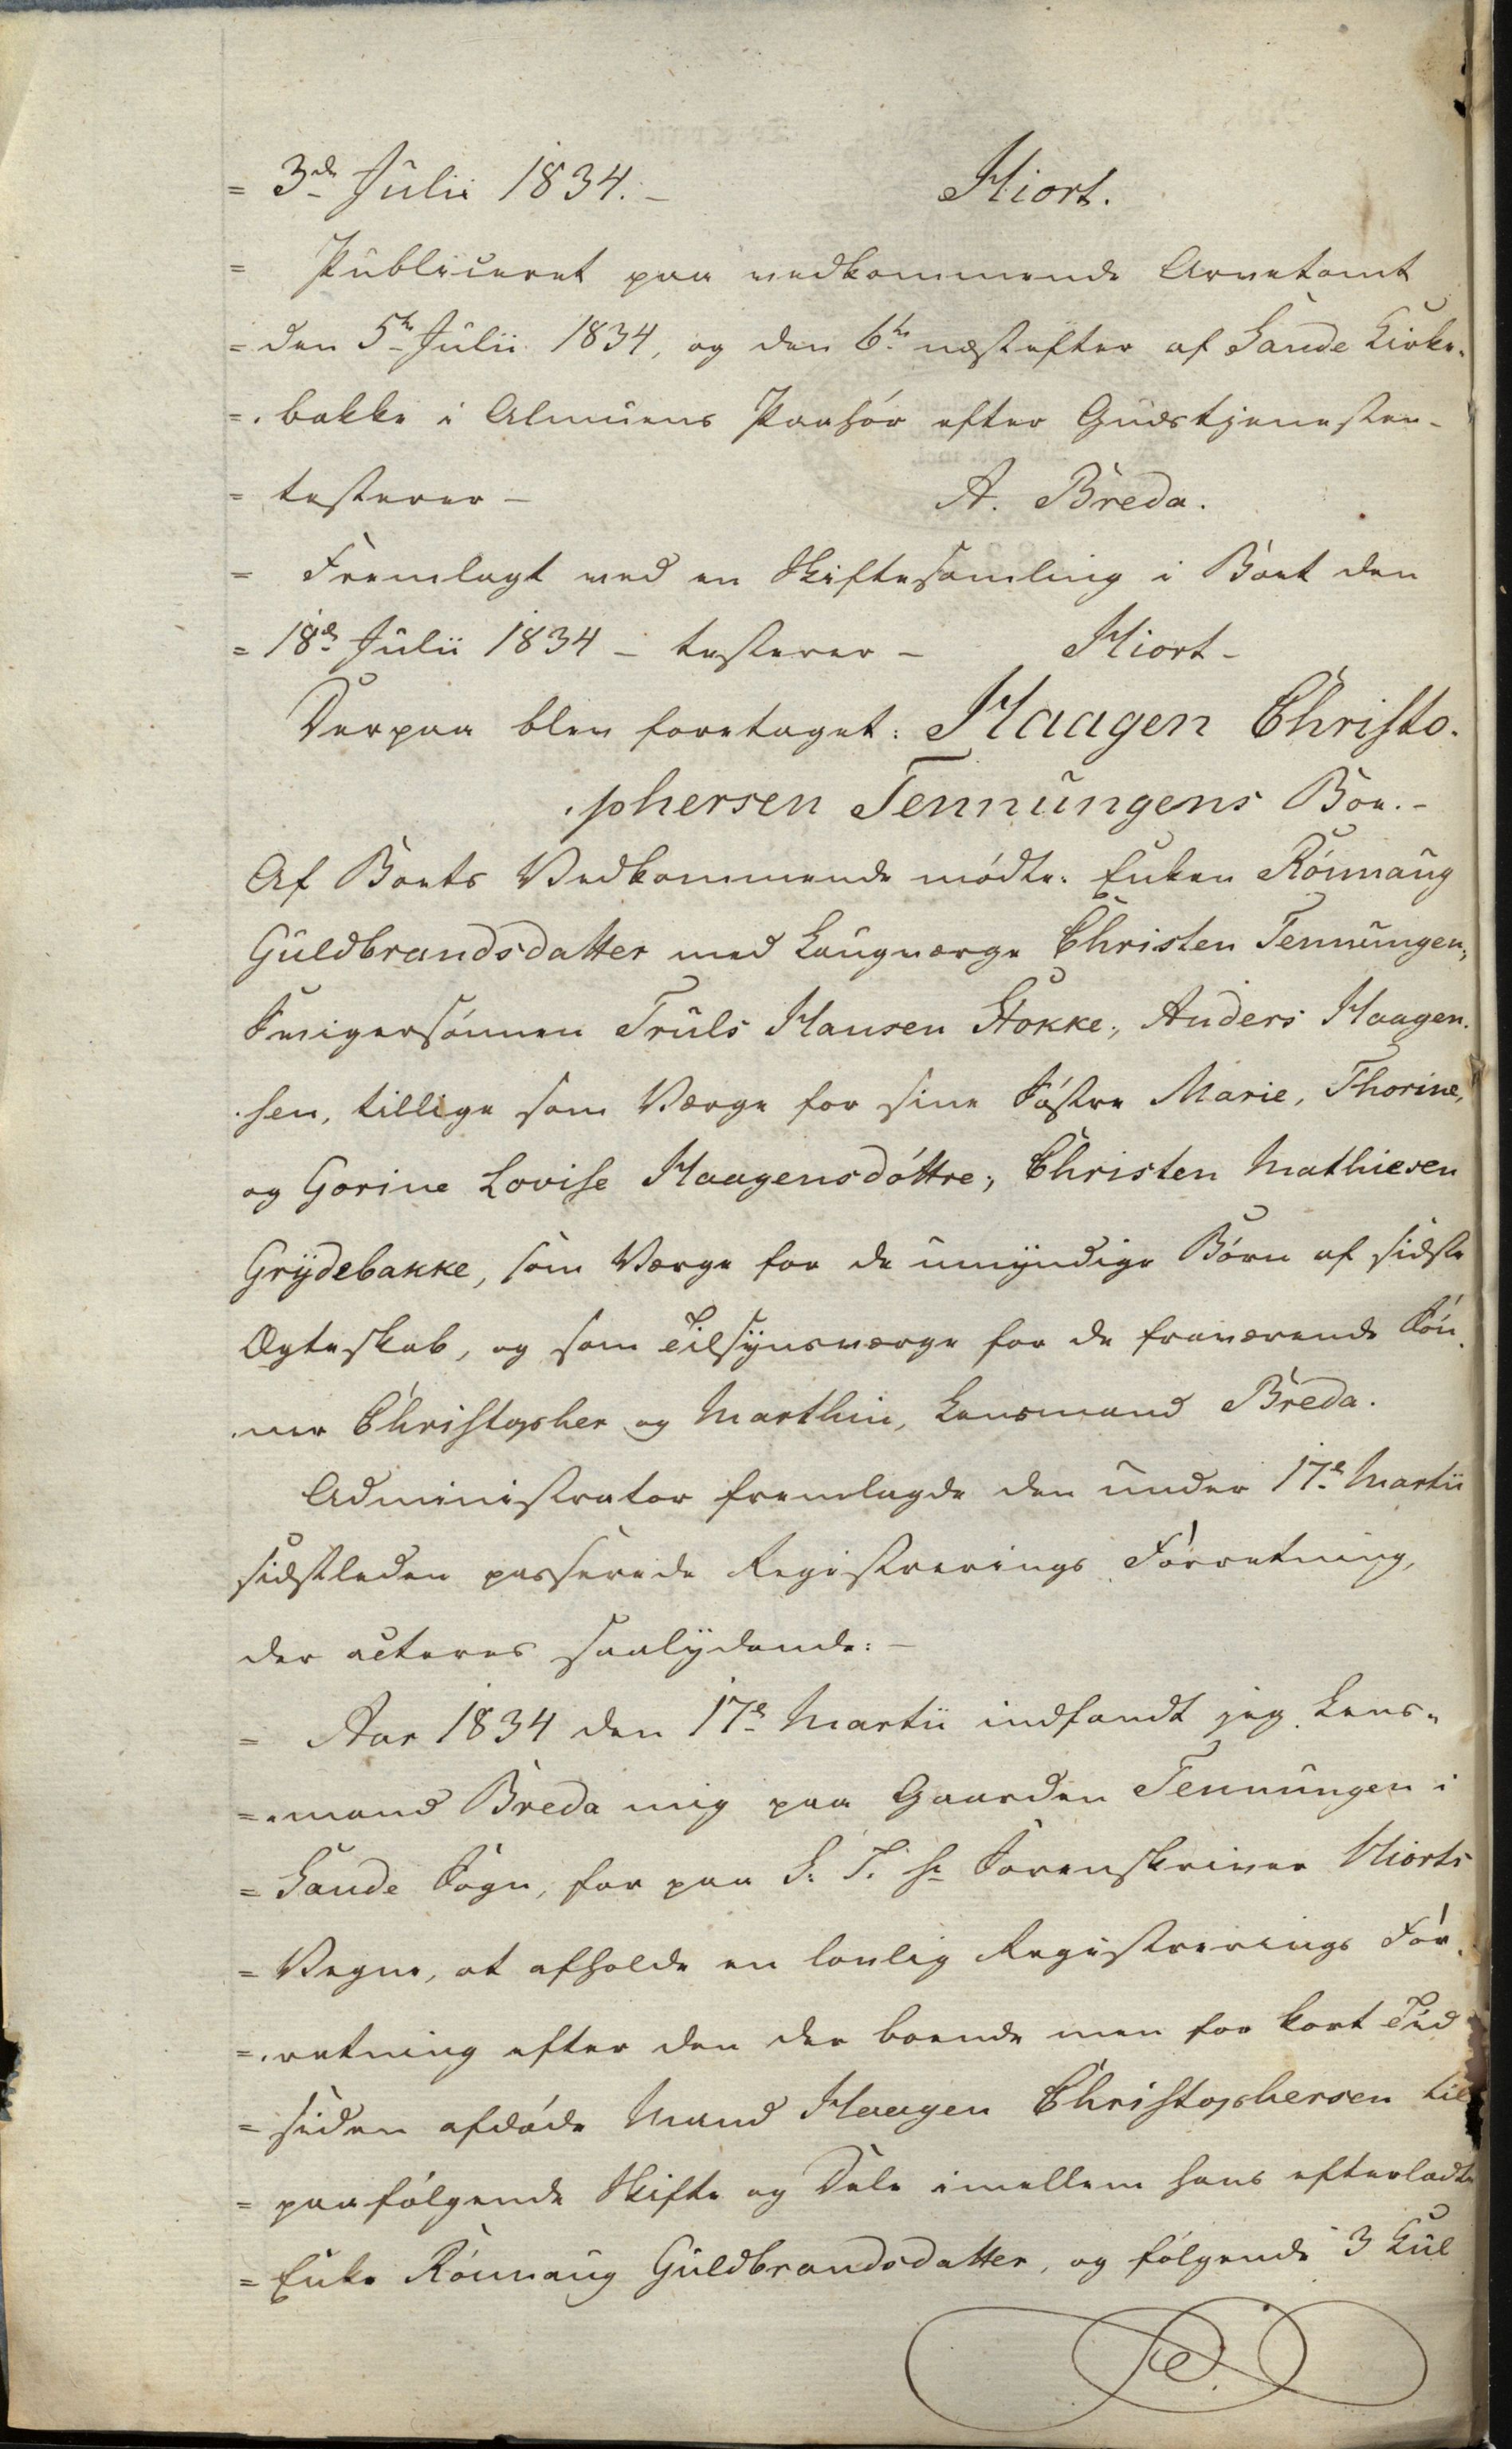 = 3de Julii 1834. – Hiort.
= Publiceret paa vedkommende Arvetomt
= den 5te Julii 1834, og den 6te næstefter af Sande Kirke-
=. bakke i Almuens Paahør efter Gudstjenesten –
= testerer – A. Breda.
= Fremlagt ved en Skiftesamling i Boet den
= 18de Julii 1834 – testerer – Hiort –
Derpaa blev foretaget: Haagen Christo-
.phersen Tennungens Boe. –
Af Boets Vedkommende mødte: Enken Rønnaug
Guldbrandsdatter med Laugværge Christen Tennungen;
Svigersønnen Truls Hansen Stokke; Anders Haagen-
.sen, tillige som Værge for sine Søstre Marie, Thorine,
og Gorine Lovise Haagensdøttre; Christen Mathiesen
Grydebakke, som Værge for de umyndige Børn af sidste
Ægteskab, og som Tilsynsværge for de fraværende Søn-
.ner Christopher og Marthin, Lensmand Breda.
Administrator fremlagde den under 17de Martii
sidstleden passerede Registrerings Forretning,
der acteres saalydende: –
= Aar 1834 den 17de Martii indfandt jeg Lens-
=.mand Breda mig paa Gaarden Tennungen i
= Sande Sogn, for paa S: T. Hr Sorenskriver Hiorts
= Vegne, at afholde en lovlig Registrerings For-
=.retning efter den der boende men for kort Tid
= siden afdøde Mand Haagen Christophersen til
= paafølgende Skifte og Dele imellem hans efterladte
= Enke Rønnaug Guldbrandsdatter, og følgende 3 Kul